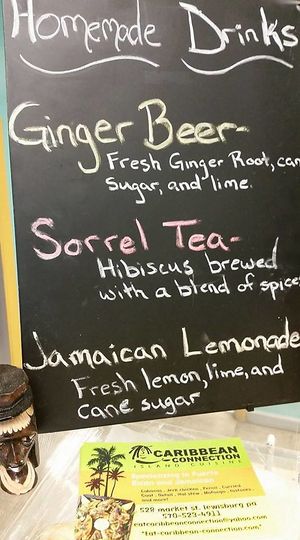 Homemade Drinks
Ginger Beer-
Fresh Ginger Root, can
Sugar, and lime.
Sorrel Tea-
Hibiscus brewed
with a blend of spice
Jamaican Lemonade
Fresh lemon, lime, and
cane sugar
CARIBBEAN
CONNECTION
ISLAND CUISINE
Specializing in Puerto
Rican and Jamaican
and more!
528 market st. lewisburg pa
570-523-4911
eatcaribbeanconnection@yahoo.com
"fat-caribbean connection"